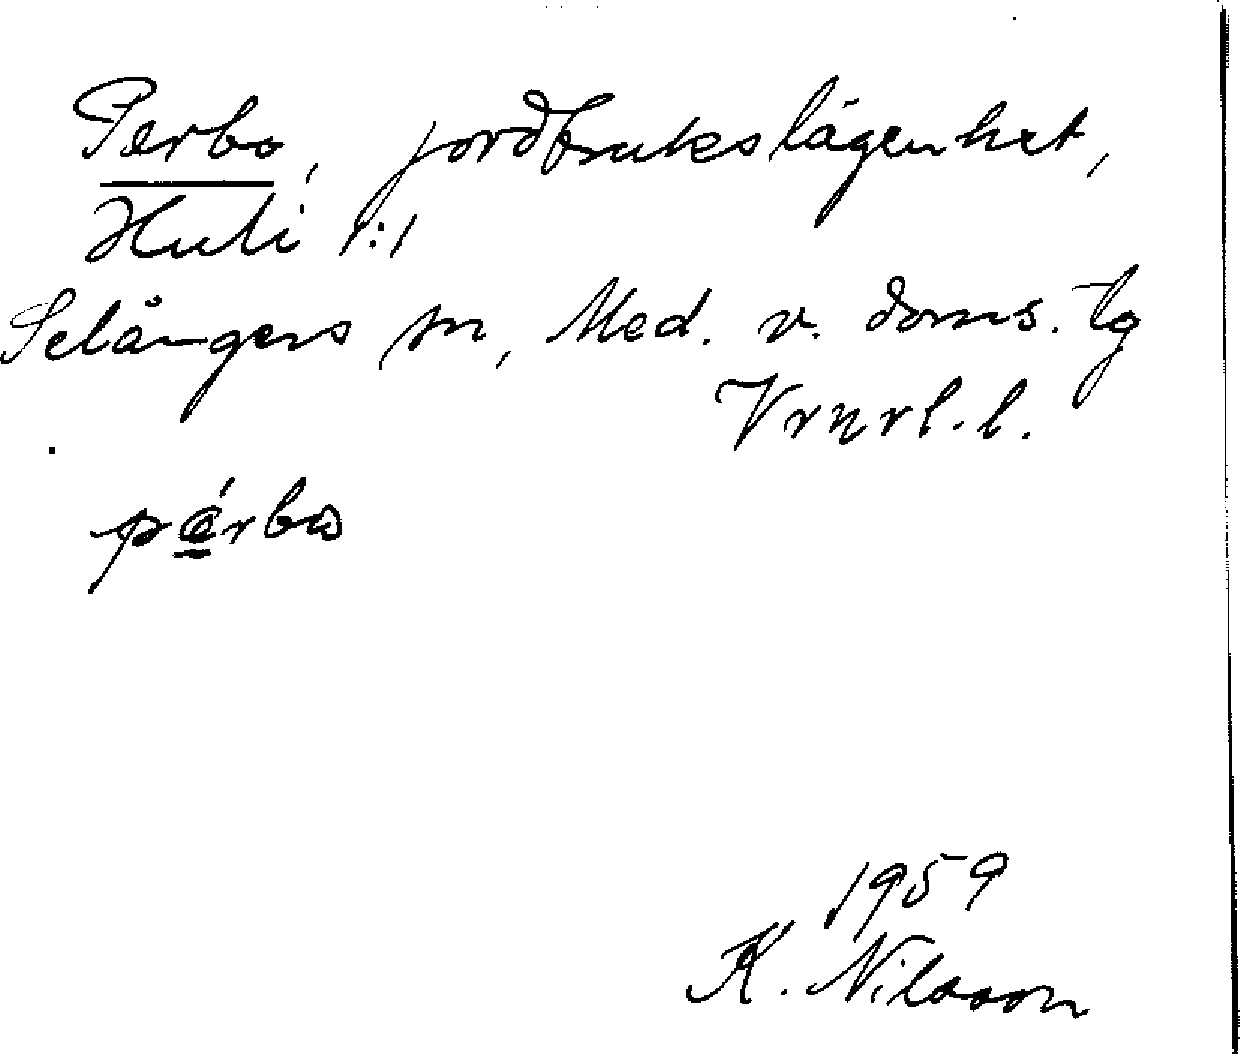 Perbo, jordbrukslägenhet,
Huli 1:1
Selångers sn, Med. v. doms. tg
Vrnrl. l.
1959
K. Nilsson